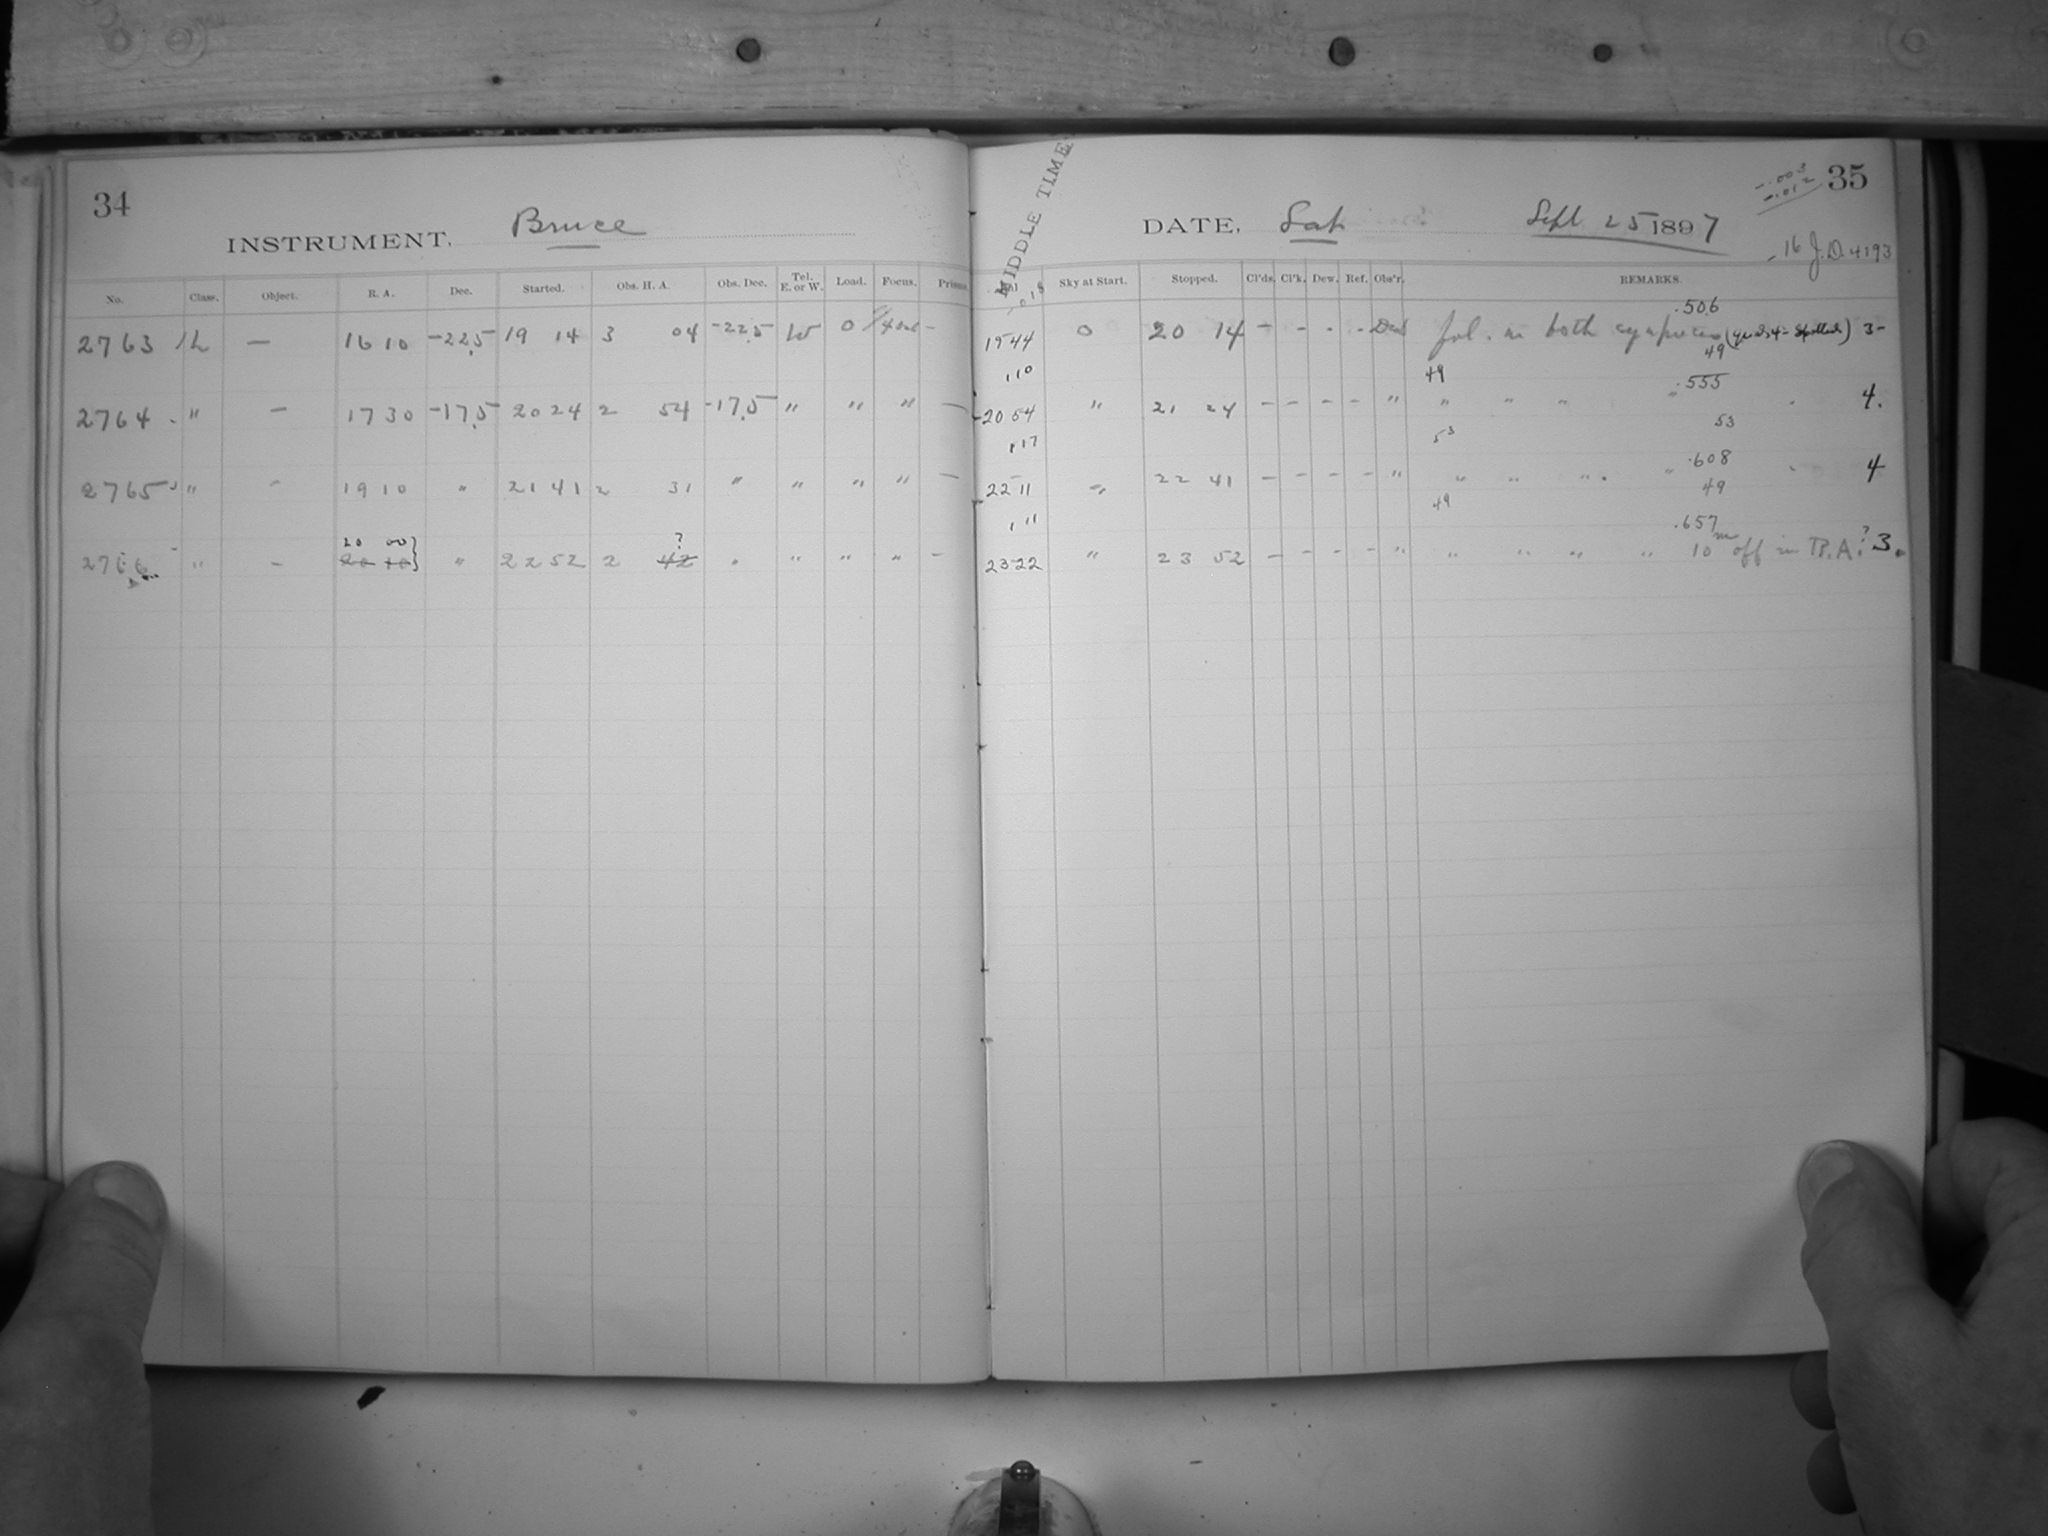 34
INSTRUMENT, Bruce
No. Class. Object. R. A. Dec. Started. Obs. H. A. Obs. Dec. Tel. E. or W. Load. Focus. Prisms.
2763 — 16 10 -22.5 19 14 3 04 -22.5 W 0 —
2764 " — 17 30 -17.5 20 24 2 54 -17.5 " " " —
2765 " - 19 10 " 21 41 2 31 " " " " —
20 00} ?
2766 " - 20 10 " 22 52 2 42 " " " " -
MIDDLE TIME
-.003
-.012
35
DATE, Sat Sept 25 1897
-16 J.D. 4193
Sky at Start. Stopped. Cl'ds. Cl'k. Dew. Ref. Obs'r. REMARKS.
-.018
.506
19 44 0 20 14 - - - - fol. in both eyepieces 3-
1 10 49 49
.555
20 54 " 21 24 - - - - " " " " " 4.
1 17 53 53
.608
22 11 " 22 41 - - - - " " " " " 4
1 11 49 49
.657
23 22 " 23 52 - - - - " " " " " 10m off in R.A.? 3.